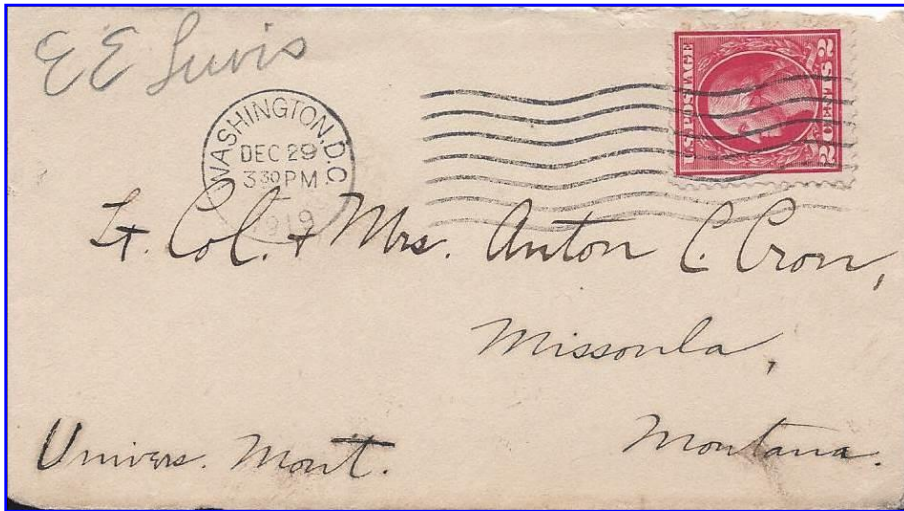 E E Lewis
WASHINGTON, D.C.
DEC 29
3 30 PM
1919
U.S. POSTAGE
2 CENTS 2
Lt. Col. + Mrs. Anton C. Cron,
Missoula,
Montana.
Univers. Mont.